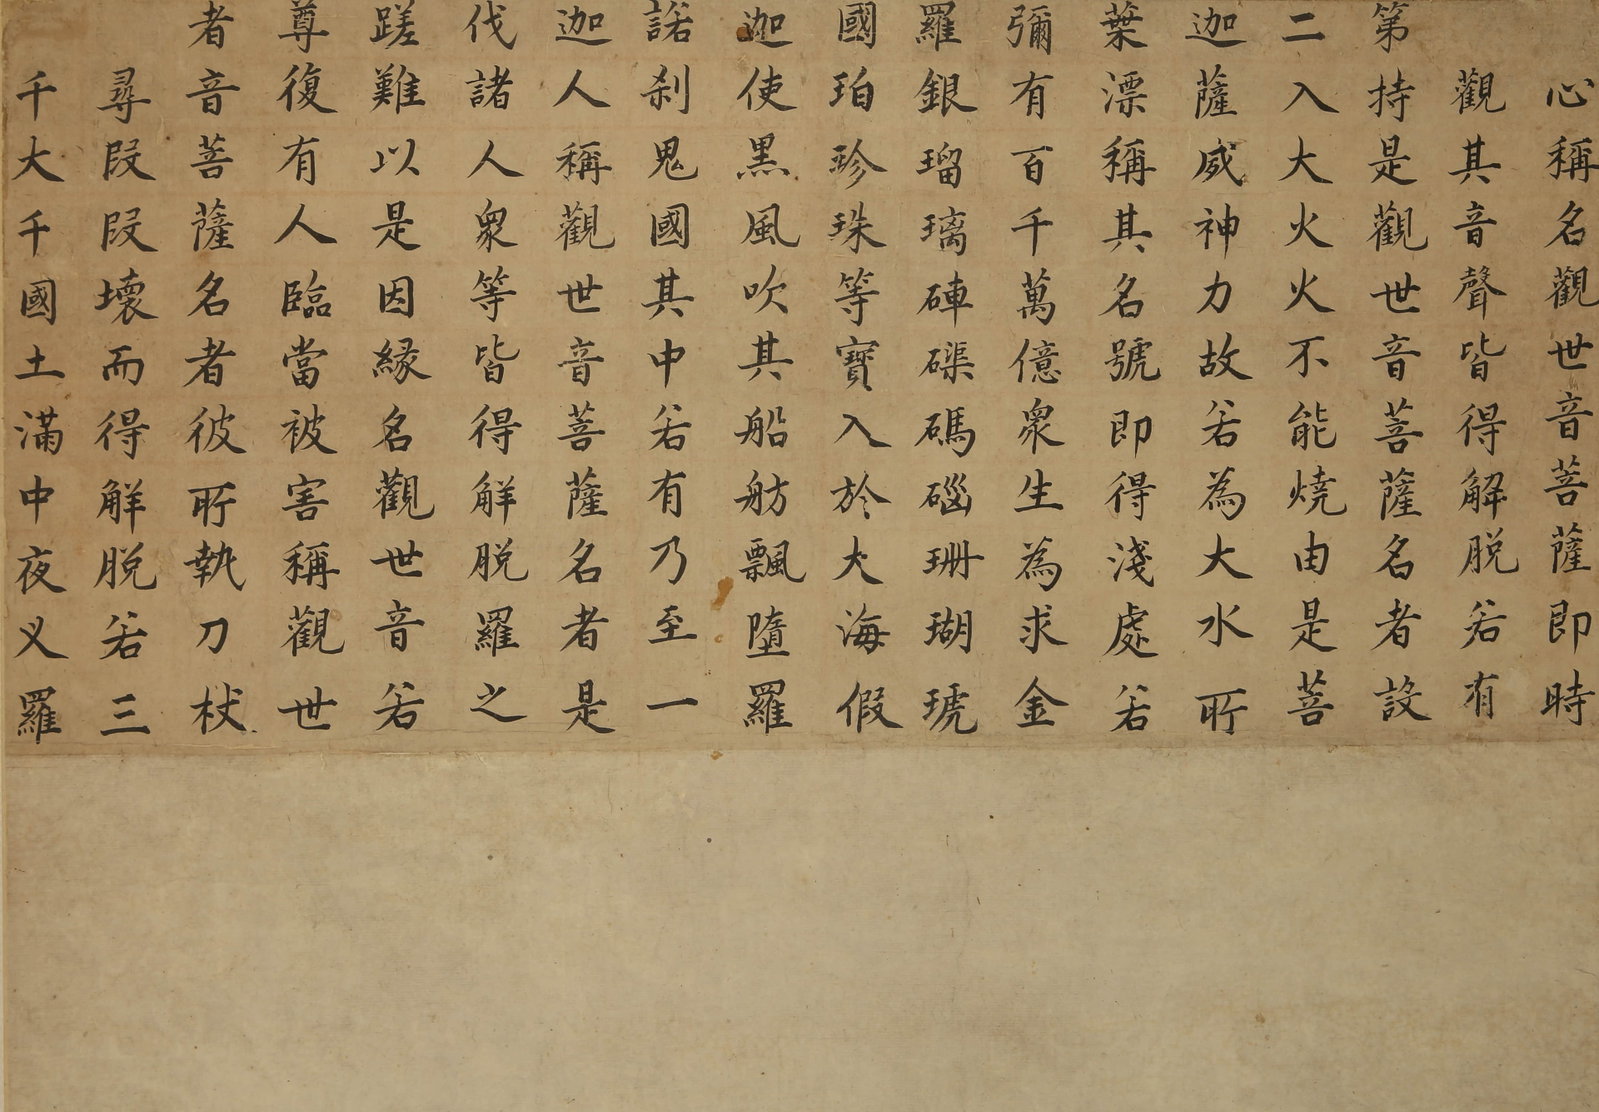 心稱名觀世音菩薩即時
觀其音聲皆得解脱若有
第持是觀世音菩薩名者設
二入大火火不能燒由是菩
迦薩威神力故若為大水所
葉漂稱其名號即得淺處若
彌有百千萬億衆生為求金
羅銀瑠璃硨磲碼碯珊瑚琥
國珀珍珠等寶入於大海假
迦使黒風吹其船舫飄墮羅
諾刹鬼國其中若有乃至一
迦人稱觀世音菩薩名者是
伐諸人衆等皆得解脱羅之
蹉難以是因縁名觀世音若
尊復有人臨當被害稱觀世
者音菩薩名者彼所執刀杖
尋段段壞而得解脱若三
千大千國土滿中夜叉羅